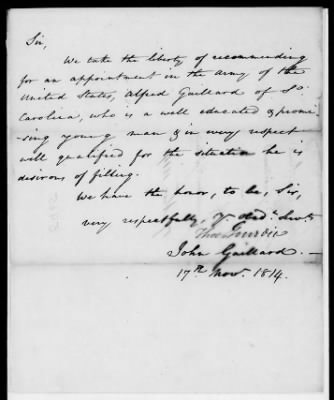 Sir,
We take the liberty of recommending
for an appointment in the army of the
United States, Alfred Gaillard of So.
Carolina, who is a well educated & promi
-sing young man & in every respect
well qualified for the situation he is
desirous of filling.
We have the honor, to be, Sir,
very respectfully, Yr. Obdt. Servts
John Gaillard. —
17th Novr. 1814.